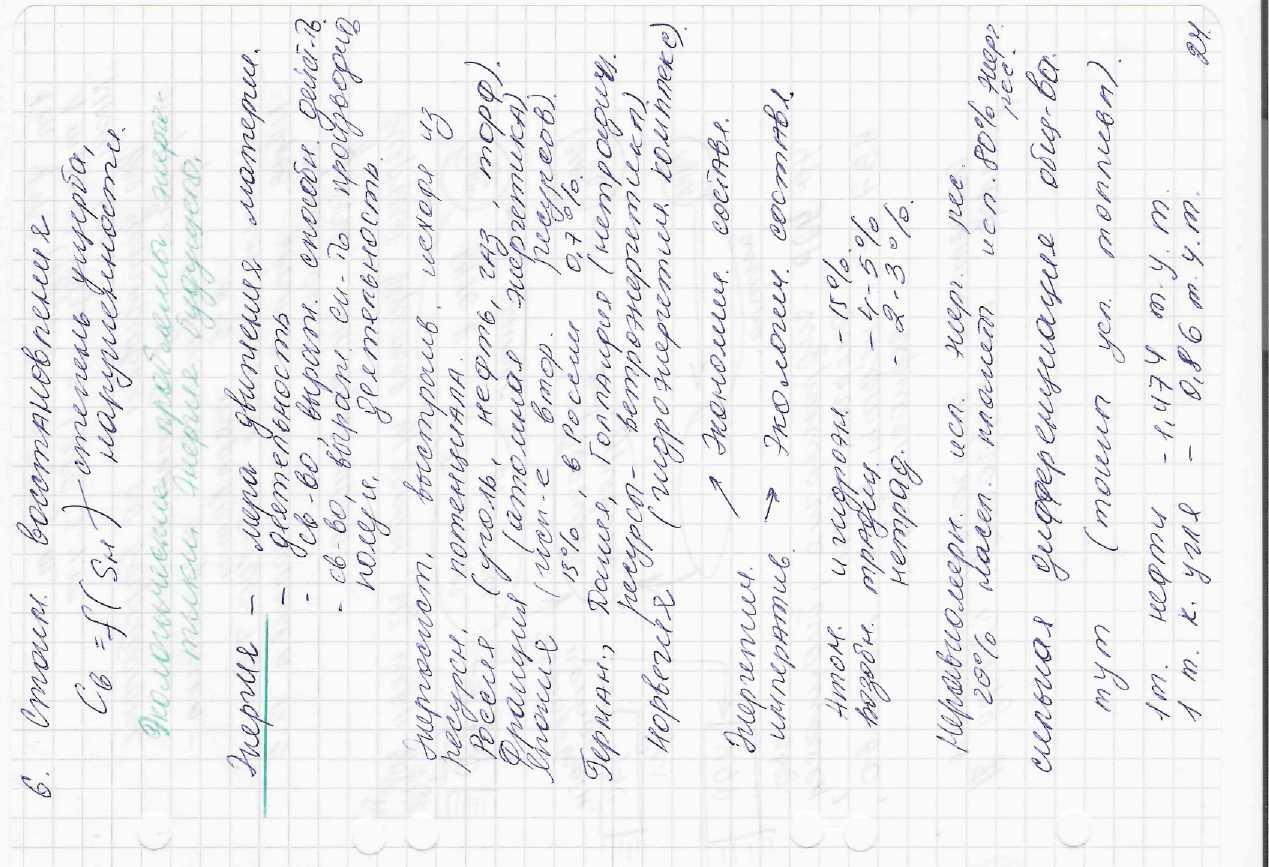 6. Стоим. восстановления
Св = f(Sн) степень ущерба,
нарушенности.
Экологические проблемы энерге-
тики. Энергия будущего.
Энергия – мера движения материи.
– деятельность
– св-во выраж. способн. деят-ть.
– св-во, выраж. сп-ть производить
полезн. деятельность.
Энергосист. выстраив. исходя из
ресурсн. потенциала.
Россия (уголь, нефть, газ, торф).
Франция (атомная энергетика)
Япония (исп-е втор. ресурсов)
13%, в России 0,7%.
Герман., Дания, Голландия (нетрадиц.
ресурсы – ветроэнергетика)
Норвегия (гидроэнергетич. комплекс).
Энергетич. ↗ Экономич. составл.
императив. → Экологич. составл.
Атом. и гидроэн – 15%.
Возобн. традиц – 4-5%
нетрад. – 2-3%.
Неравномерн. исп. энерг. рес.
20% насел. планет исп. 80% энерг.
рес.
сильная дифференциация общ-ва.
тут (тонны усл. топлива).
1т. нефти – 1,474 т.у.т.
1 т. к. угля – 0,86 т.у.т.
24